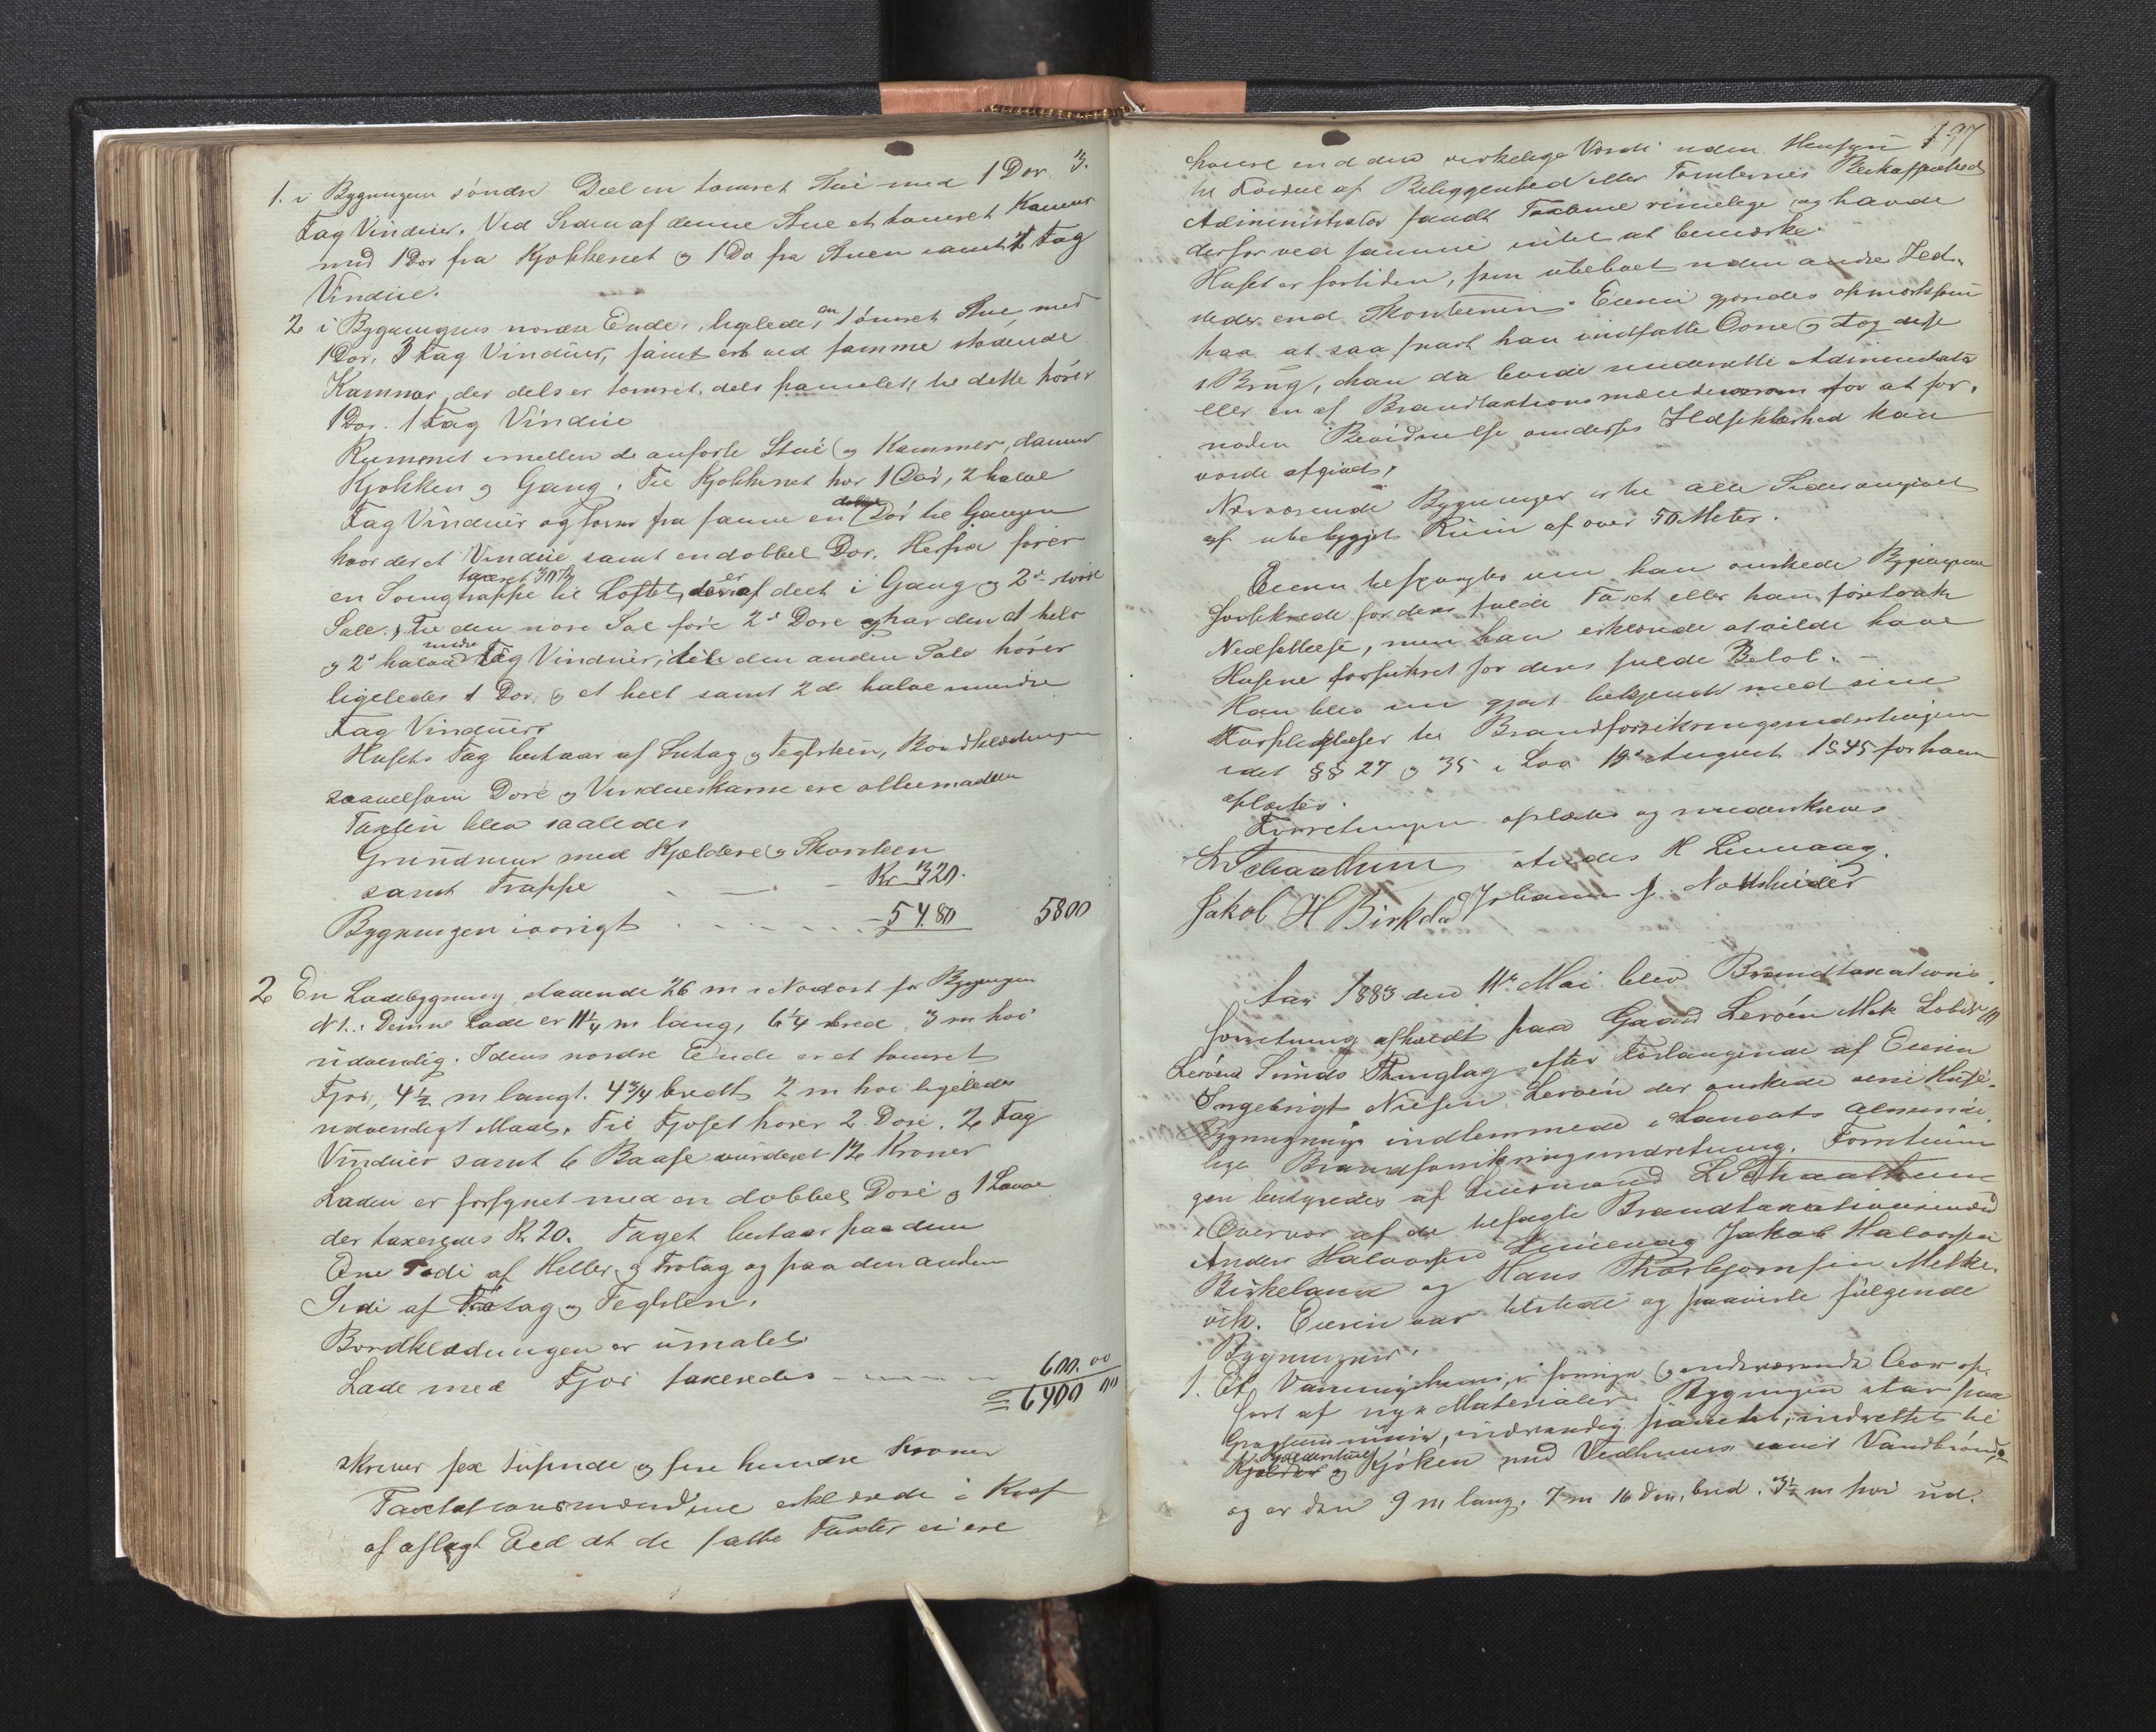 1. i Bygningens söndre Deel en tömret Stue med 1 Dör 3.
Fag Vinduer. Ved Siden af denne Stue et tömret Kamer
med 1 Dör fra Kjökkenet og 1 Do fra Stuen samt 1 Fag
Vindue.
2 i Bygningens nordre Ende, ligeledes en tömret Stue med
1 Dör, 3 Fag Vinduer, samt et ved samme stödende
Kammer, der dels er tömret, dels panelet, til dette hörer
1 Dör. 1 Fag Vindue
Rummet imellem de anförte Stue og Kammer, danner
Kjökken og Gang. Til Kjökkenet hör 1 Dör, 2 halve
Fag Vinduer og förer fra samme en dobbel Dör til Gangen
hvor der et Vindue samt en dobbel Dör. Herfra förer
en Svingtrappe taxeret til Loftet, der er af deelt i Gang og 2de störe
Sale. Til den nore Sal före 2de Döre og har den et helt
og 2de halve mindre Fag Vinduer, til den anden Sal hörer
ligeledes 1 Dör, og et heelt samt 2de halve mindre
Fag Vinduer.
Husets Tag bestaar af Sutag og Teglsteen, Bordklædningen
saavelsom Döre og Vindueskarme ere alle malede
Taxten blev saaledes
Grundmur med Kjeldere og Skorsteen
samt Trappe - - - Kr 320.
Bygningen iövrigt - - - 5480 5800
2 En Ladebygning staaende 26 m i Nordost for Bygningen
N 1. Denne Lade er 11 1/4 m lang, 6 1/4 bred 3 m höi
udvendig. I dens nordre Ende er et tömret
Fjös, 4 1/2 m langt. 4 3/4 bredt 2 m höi ligeledes
udvendigt Maal. Til Fjöset hörer 2 Döre. 2 Fag
Vinduer samt 6 Baase vurderet 12 Kroner
Laden er forsynet med en dobbel Döre og 1 Lauve
der taxeredes Kr 20. Taget bestaar paa den
Ene Side af Heller og Trotag og paa den anden
Side af Trotag og Teglsten.
Bordklædningen er umalet
Lade med Fjös taxeredes - - - 600.00
= 6400 00
skriver sex tusende og fire hundre Kroner
Taxtationsmændene erklærede i Kraf
af aflagt Eed at de satte Taxter ei ere
197
höiere end den virkelige Værdi uden Hensyn
til Fordeel af Beliggenhed eller Tomternes Beskaffenhed
Administrator fandt Taxterne rimelige og havde
derfor ved samme intet at bemærke.
Huset er fortiden, som ubeboet uden andre Ild-
steder end Skorstenen. Eieren gjordes opmærksom
paa at saa snart han indsatte Ovne og tog disse
i Brug, han da burde underrette Administrator
eller en af Brandtaxtionsmændene herom for at for-
nöden Bevidnelse om deres Ildsikkerhed kan
vorde afgivet.
Nærværende Bygninger er til alle Sider omgivet
af ubebygget Rum af over 50 Meter.
Eieren bespurgtes om han önskede Bygningerne
forsikrede for deres fulde Taxt eller han foretrak
Nedsættelse, men han erklærede at vilde have
Husene forsikret for deres fulde Belöb. -
Han blev nu gjort bekjendt med sine
Forpligtelser til Brandforsikringsindretningen
idet §§ 27 og 35 i Lov 19de August 1845 for ham
oplæstes.
Forretningen oplæstes og underskreves
L Schaathun Andes H Liennaag.
Jakob H Birkeland Johannes J. Nattsheider
Aar 1883 den 11te Mai blev Brandtaxations
forretning afholdt paa Gaard Leröen Mtk Löbe
Leröen Sunds Thinglag efter Forlangende af Eieren
Ingebrigt Nielsen Leröen der önskede sine Huse-
Bygninger indlemmede i Landets almind-
lige Brandforsikringsindretning. Forretnin
gen bestyredes af Lensmand L Schaathun
i Overvær af de befalte Brandtaxationsmænd
Anders Halvorsen Lienevaag Jakob Halvorsen
Birkeland og Hans Thorbjörnsen Milke-
vik. Eieren var tilstede og paaviste fölgende
Bygninger.
1. Et Vaaningshuus, i forrige og indeværende Aar op
fört af nye Materialer. Bygningen staar paa
Graasteensmuur, indvendig panelet, indrettet til
Kjelder og Kjöken med Vedhuus samt Vandbrönd.
og er den 9 m lang. 7 m 16 dm. bred. 3 1/2 m höi ud.